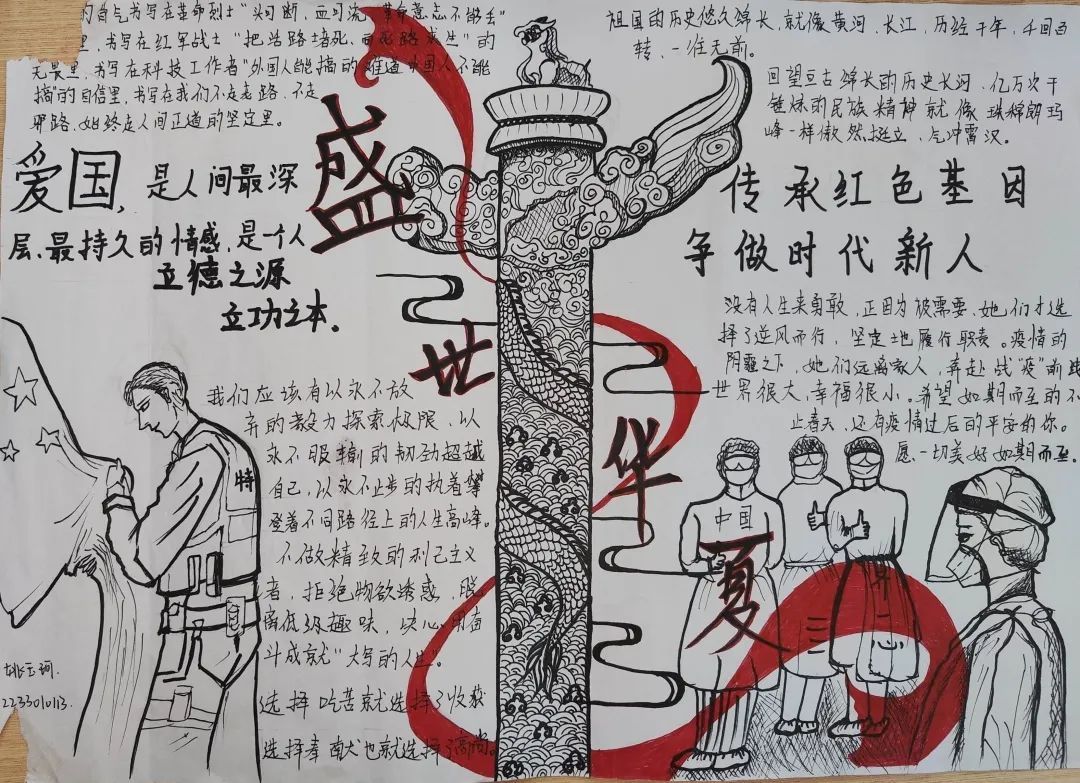 的自气书写在革命烈士“头可断，血可流，革命意志不能丢”
里，书写在红军战士“把活路堵死，向死路求生”的
无畏里，书写在科技工作者“外国人能搞的难道中国人不能
搞”的自信里，书写在我们不走老路、不走
邪路，始终走人间正道的坚定里。
爱国，是人间最深
层、最持久的情感，是一个人
立德之源
立功之本。
我们应该有以永不放
弃的毅力探索极限，以
永不服输的韧劲超越
自己，以永不止步的执着攀
登着不同路径上的人生高峰。
不做精致的利己主义
者，拒绝物欲诱惑，脱
离低级趣味，决心用奋
斗成就“大写的人生。
选择吃苦就选择了收获
选择奉献也就选择了高尚。
特
2233010113.
盛
世
华
夏
祖国的历史悠久绵长，就像黄河、长江，历经千年，千回百
转、一往无前。
回望亘古绵长的历史长河，亿万次千
锤炼的民族精神就像珠穆朗玛
峰一样傲然挺立，气冲霄汉。
传承红色基因
争做时代新人
没有人生来勇敢，正因为被需要，她们才选
择了逆风而行，坚定地履行职责。疫情的
阴霾之下，她们远离家人，奔赴战“疫”前线
世界很大，幸福很小。希望如期而至的不
止春天，还有疫情过后的平安的你。
愿一切美好如期而至。
中国